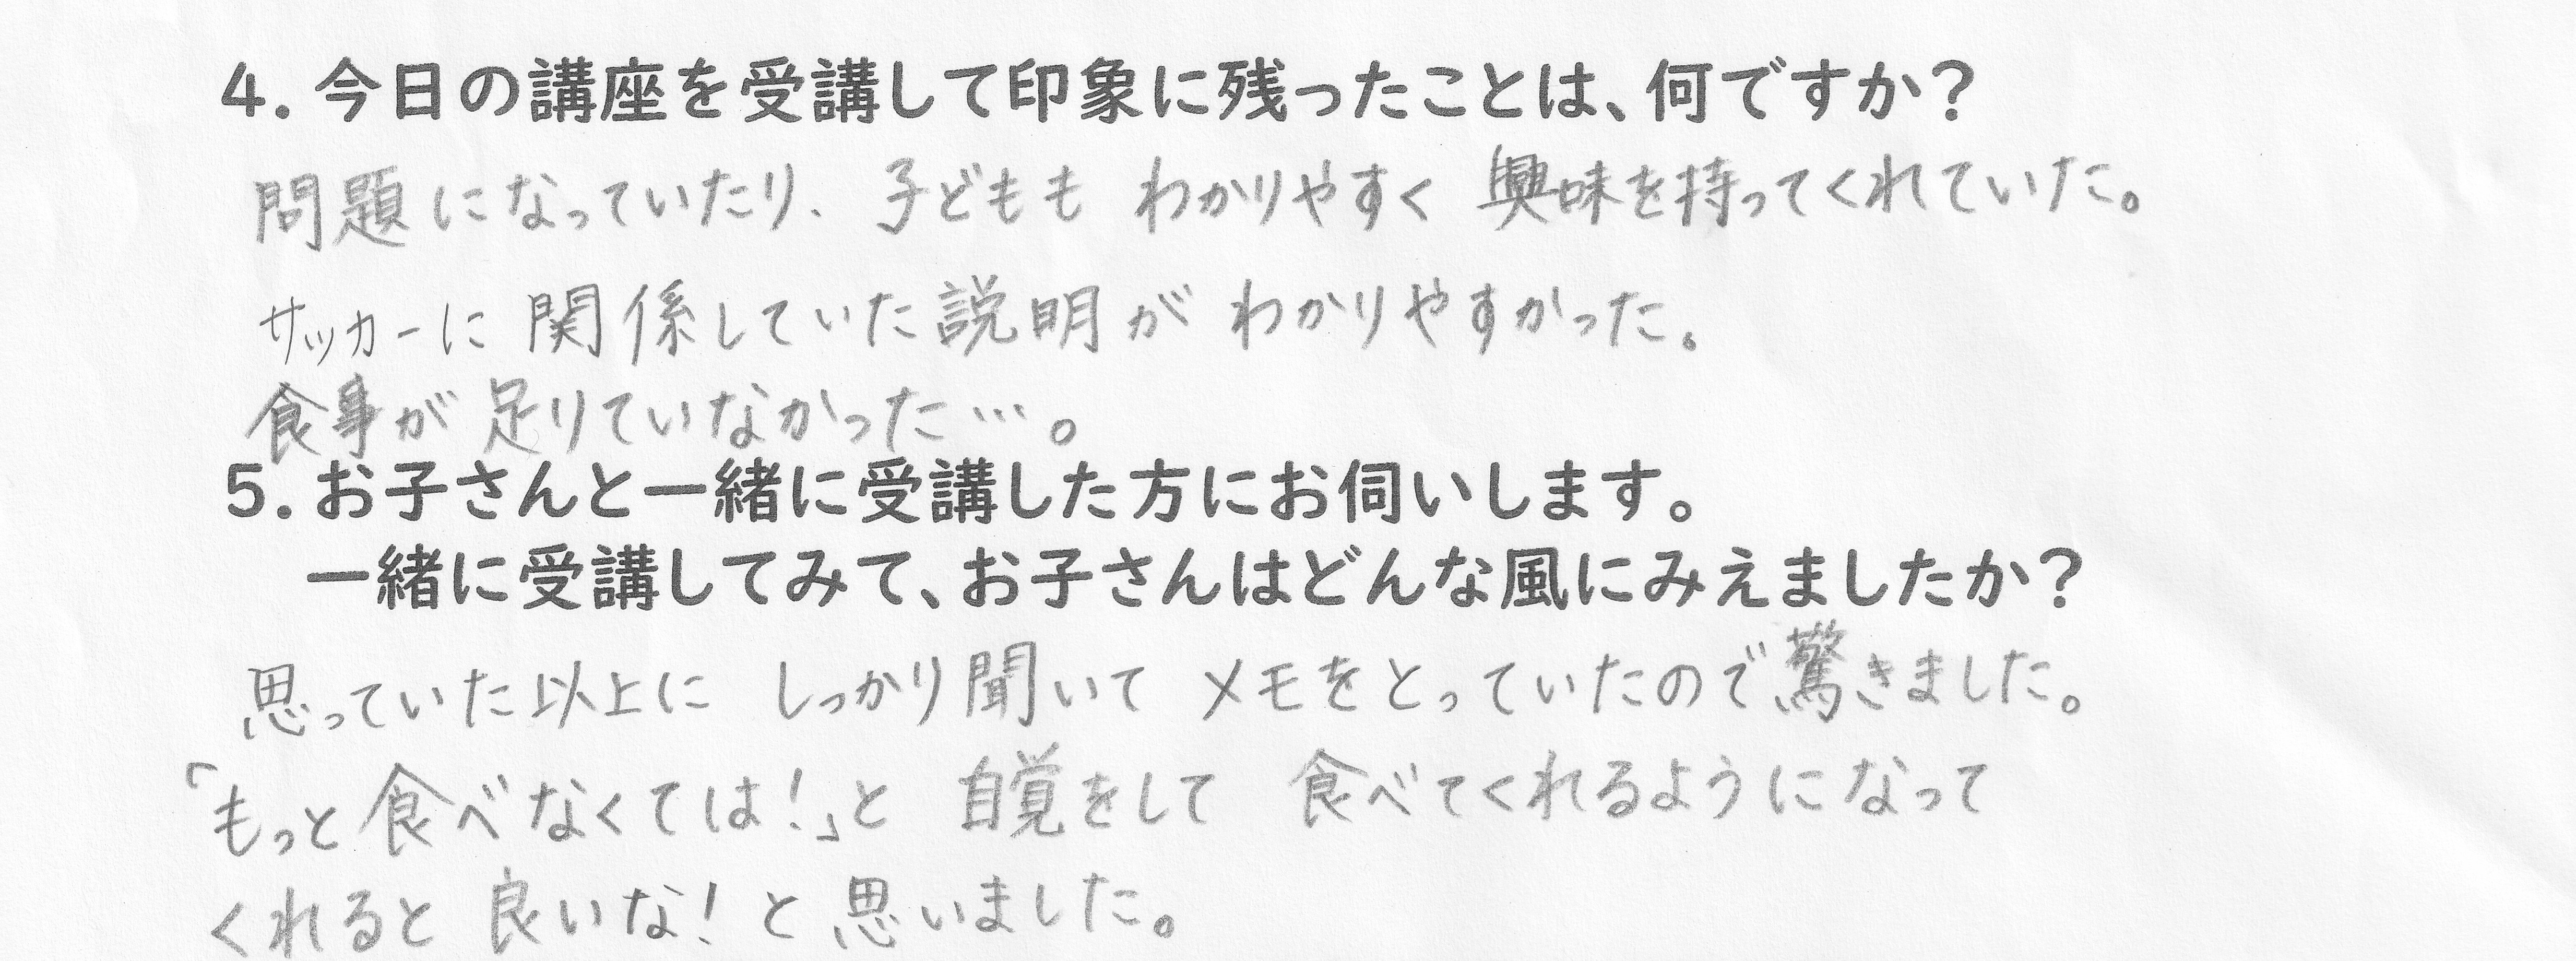 4. 今日の講座を受講して印象に残ったことは、何ですか?
問題になっていたり、子どももわかりやすく興味を持ってくれていた。
サッカーに関係していた説明がわかりやすかった。
食事が足りていなかった…。
5. お子さんと一緒に受講した方にお伺いします。
一緒に受講してみて、お子さんはどんな風にみえましたか?
思っていた以上にしっかり聞いてメモをとっていたので驚きました。
「もっと食べなくては!」と自覚をして食べてくれるようになって
くれると良いな!と思いました。